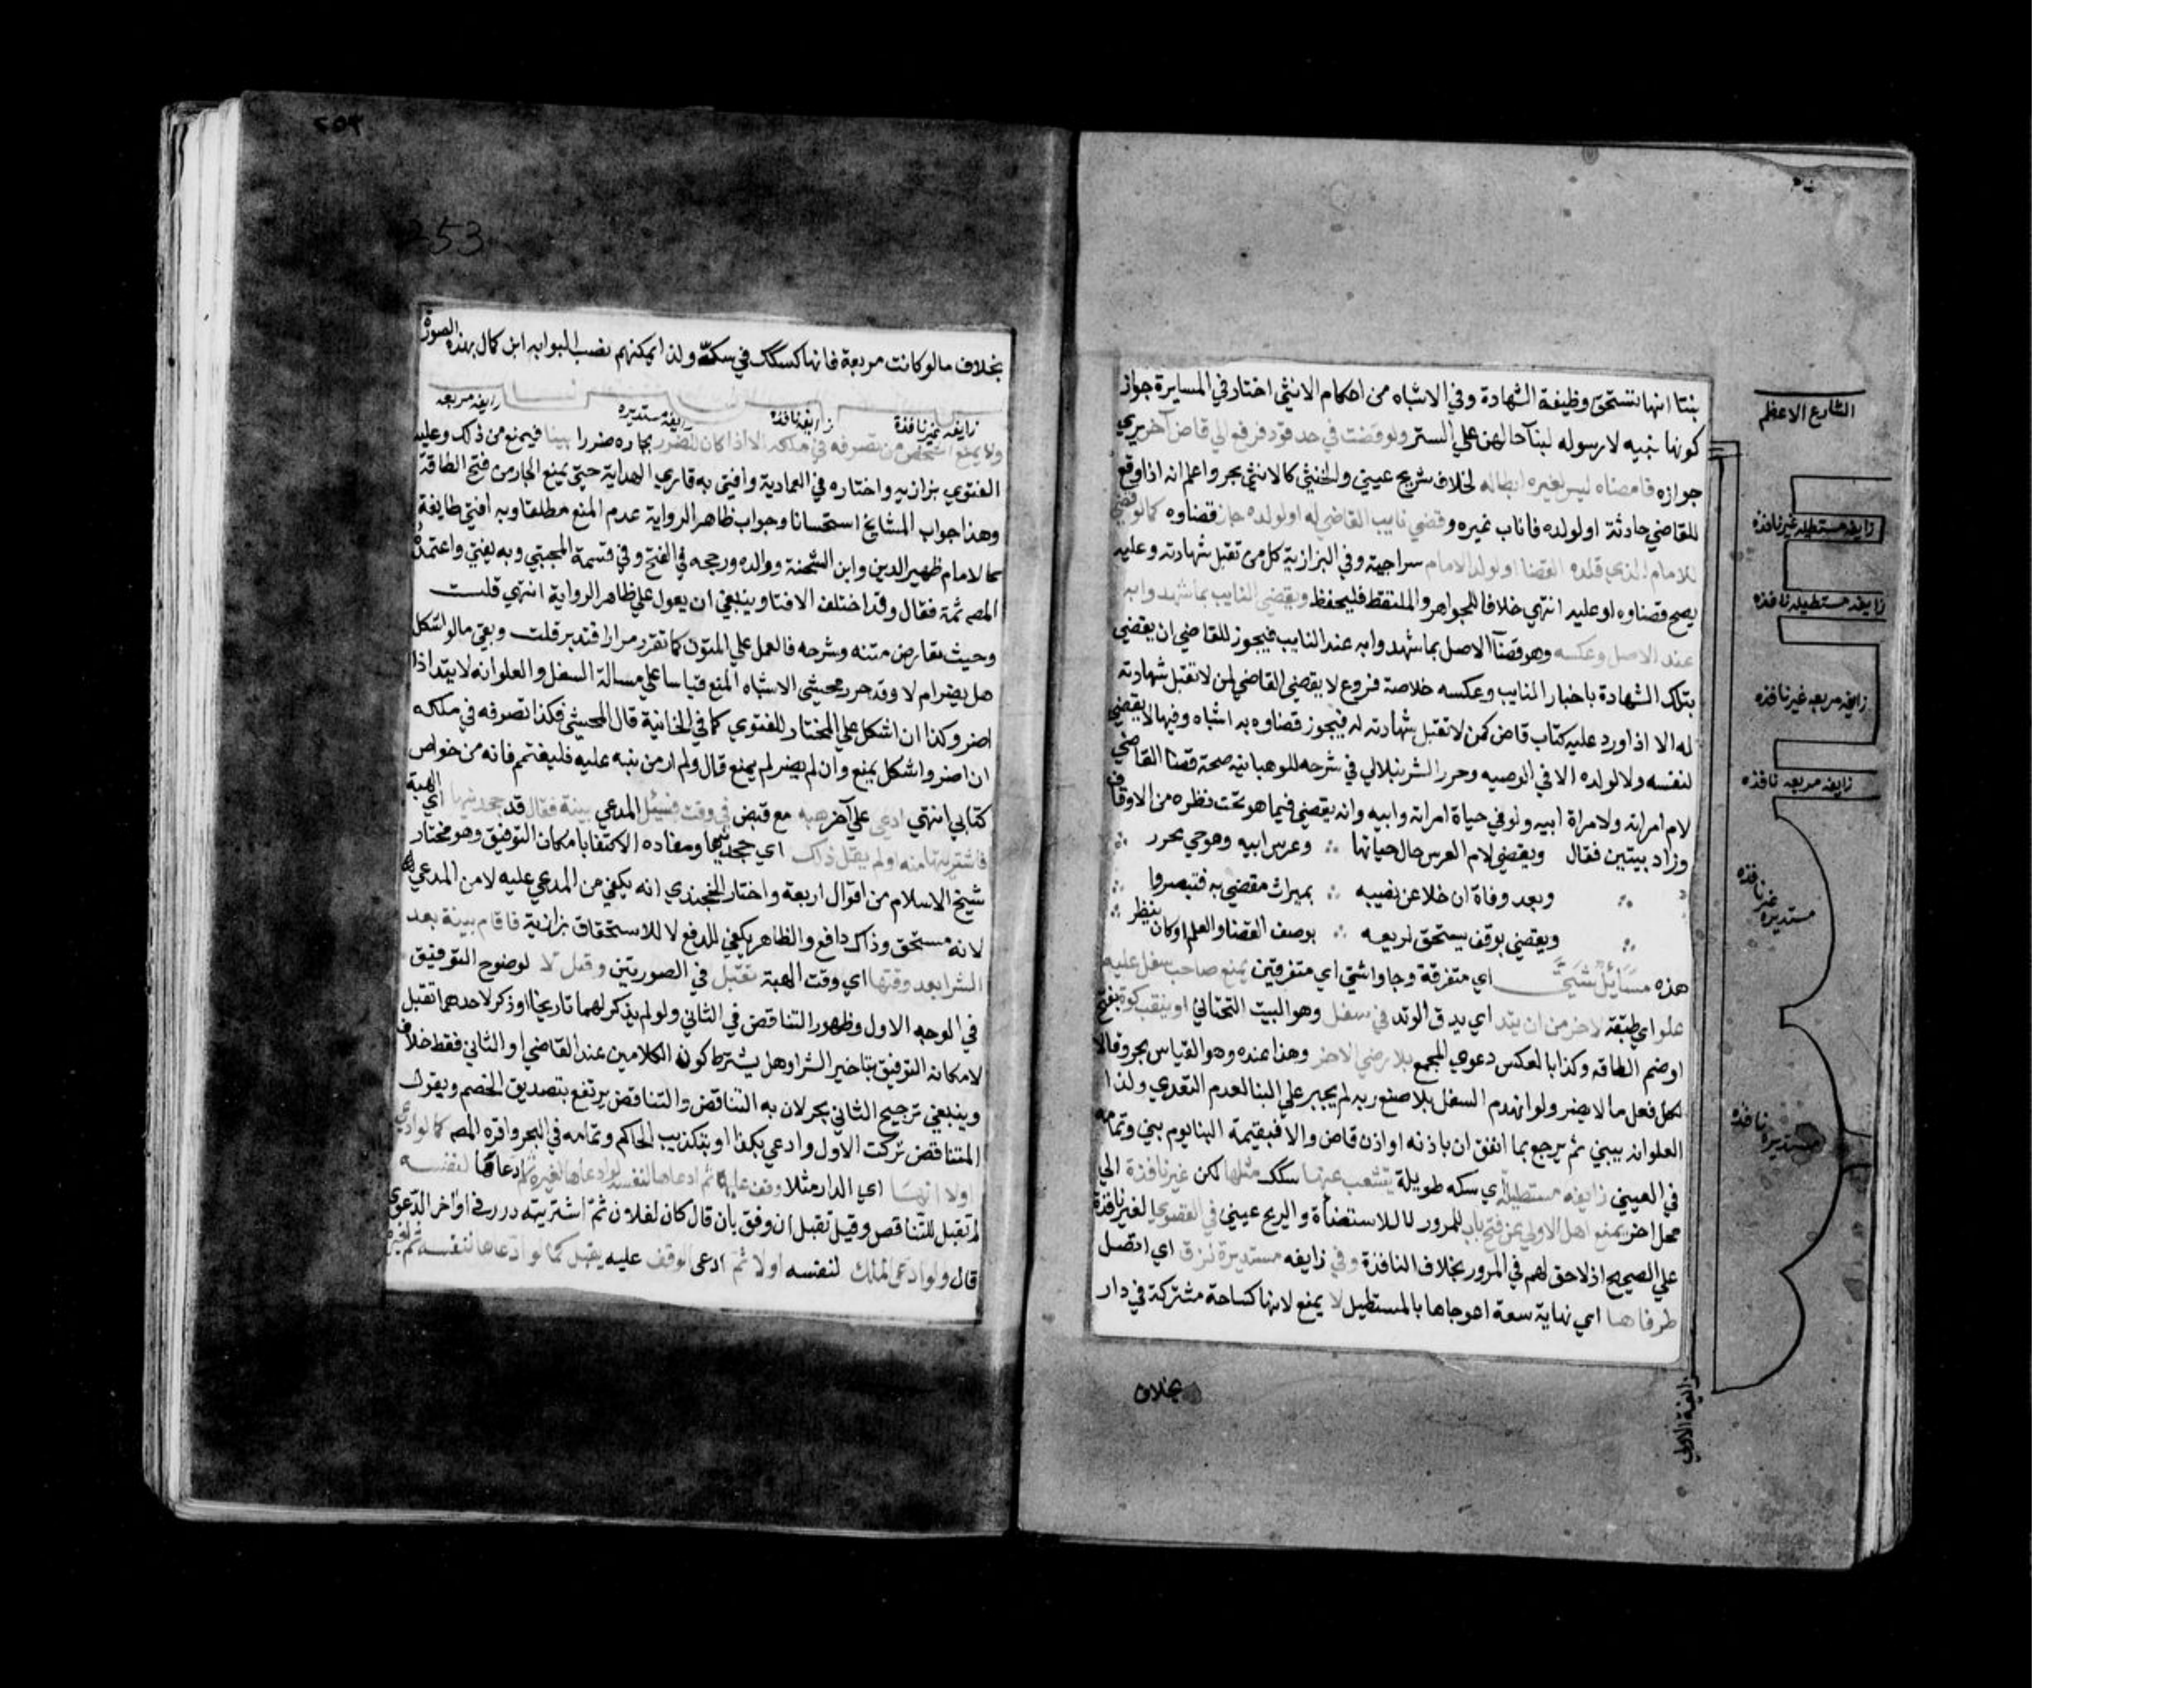 بنتا انها تستحق وظيفة الشهادة وفي الاشباه من احكام الانثى اختار في المسايرة جواز
كونها نبيه لا رسوله لبنآ حالهن علي الستر ولو قضت في حد وقود فرفع الي قاض آخر يري
جوازه فامضاه ليس لغيره ابطاله لخلاف شريح عيني والخنثي كالانثي بحر واعلم انه اذا وقع
للقاضي حادثة اولولده فاناب غيره وقضي نايب القاضي له اولولده جاز قضاوه كما لو قضي
للامام الذي قلده القضا اولولد الامام سراجية وفي البزازية كل من تقبل شهادته وعليه
يصح قضاوه له وعليه انتهي خلافا للجواهر والملتقط فليحفظ ويقضي النايب بما شهدوا به
عند الاصل وعكسه وهو قضآ الاصل بما شهدوا به عند النايب فيجوز للقاضي ان يقضي
بتلك الشهادة باخبار النايب وعكسه خلاصة فروع لا يقضي القاضي لمن لا تقبل شهادته
له الا اذا ورد عليه كتاب قاض لمن لا تقبل شهادته له فيجوز قضاوه به اشباه وفيها لا يقضي
لنفسه ولا لولده الا في الوصيه وحرر الشرنبلالي في شرحه للوهبانيه صحة قضا القاضي
لام امراته ولامراة ابيه ولو في حياة امراته وابيه وانه يقضي فيما هو تحت نظره من الاوقاف
وزاد بيتين فقال ويقضي لام العرس حال حياتها وعرس ابيه وهو حي محرر
وبعد وفاة ان خلا عن نصيبه بميراث مقضي به فتبصروا
ويقضي بوقف يستحق لريعه بوصف القضا والعلم اوكان ينظر
هذه مسائل شتى اي متفرقة وجاوا شتي اي متفرقين يمنع صاحب سفل عليه
علو اي طبقة لاخر من ان يتد اي يدق الوتد في سفل وهو البيت التحتاني او ينقب كوة بفتح
اوضم الطاقه وكذا بالعكس دعوي المجمع بلا رضي الاخر وهذا عنده وهو القياس بحر وقالا
لكل فعل ما لا يضر ولو انهدم السفل بلا صنع ربه لم يجبر علي البنا لعدم التعدي ولذا
العلو انه يبني ثم يرجع بما انفق ان باذنه او اذن قاض والا فبقيمة البنا يوم بني وتمامه
في العيني زايغه مستطيلة اي سكه طويلة يتشعب عنها سكك مثلها لكن غير نافذة الي
محل اخر يمنع اهل الاولي عن فتح باب للمرور لا للاستضاة والريح عيني في القصوي الغير نافذة
علي الصحيح اذ لا حق لهم في المرور بخلاف النافذة وفي زايغه مستديرة لزق اي اتصل
طرفاها اي نهاية سعة اعوجاها بالمستطيل لا يمنع لانها كساحة مشتركة في دار
بخلاف
الشارع الاعظم
زايغه مستطيله غير نافذة
زايغه مستطيله نافذة
زايغه مربعه غير نافذة
زايغه مربعه نافذة
مستديره غير نافذه
مستديره نافذه
253
بخلاف ما لو كانت مربعة فانها كسكة في سكة ولذا يمكنهم نصب البوابه ابن كمال بهذه الصورة
زايغه غير نافذة
زايغه نافذه
زايغه مستديره
زايغه مربعه
ولا يمنع الشخص من تصرفه في ملكه الا اذا كان الضرر بجاره ضررا بينا فيمنع من ذلك وعليه
الفتوي بزازيه واختاره في العمادية وافتي به قاري الهداية حتي يمنع الجار من فتح الطاقة
وهذا جواب المشايخ استحسانا وجواب ظاهر الرواية عدم المنع مطلقا وبه افتي طايفة
كالامام ظهير الدين وابن الشحنة ووالده ورجحه في الفتح وفي قسمة المجتبي وبه يفتي واعتمده
المصـ ثمة فقال وقد اختلف الافتا وينبغي ان يعول علي ظاهر الرواية انتهي قلت
وحيث تعارض متنه وشرحه فالعمل علي المتون كما تقرر مرارا فتدبر قلت وبقي ما لو اشكل
هل يضر ام لا وقد حرر محشي الاشباه المنع قياسا علي مسالة السفل والعلو انه لا يتد اذا
اضر وكذا ان اشكل علي المختار للفتوي كما في الخانية قال المحشي فكذا تصرفه في ملكه
ان اضر واشكل يمنع وان لم يضر لم يمنع قال ولم ار من نبه عليه فليغتنم فانه من خواص
كتابي انتهي ادعي علي آخر هبه مع قبض في وقت فسئل المدعي بينة فقال قد جحدنيها اي الهبة
فاشتريتها منه او لم يقل ذلك اي جحدنيها ومفاده الاكتفا بامكان التوفيق وهو مختار
شيخ الاسلام من اقوال اربعة واختار الخجندي انه يكفي من المدعي عليه لا من المدعي
لانه مستحق وذاك دافع والظاهر يكفي للدفع لا للاستحقاق بزازية فاقام بينة بعد
الشرا بعد وقتها اي وقت الهبة تقبل في الصورتين وقبل لا لوضوح التوفيق
في الوجه الاول وظهور التناقض في الثاني ولو لم يذكر لهما تاريخا او ذكر لاحدهما تقبل
لامكان التوفيق بتاخير الشرا وهل يشترط كون الكلامين عند القاضي او الثاني فقط خلاف
وينبغي ترجيح الثاني بحر لان به التناقض والتناقض يرتفع بتصديق الخصم وبقول
المتناقض تركت الاول وادعي بكذا او بتكذيب الحاكم وتمامه في البحر واقره المصـ كما لو ادعي
اولا انها اي الدار مثلا وقف عليه ثم ادعاها لنفسه او ادعاها لغيره ثم ادعاها لنفسه
لم تقبل للتناقض وقيل تقبل ان وفق بان قال كان لفلان ثم اشتريته درر في اواخر الدعوي
قال ولو ادعي الملك لنفسه اولا ثم ادعى الوقف عليه يقبل كما لو ادعاها لنفسه ثم لغيره